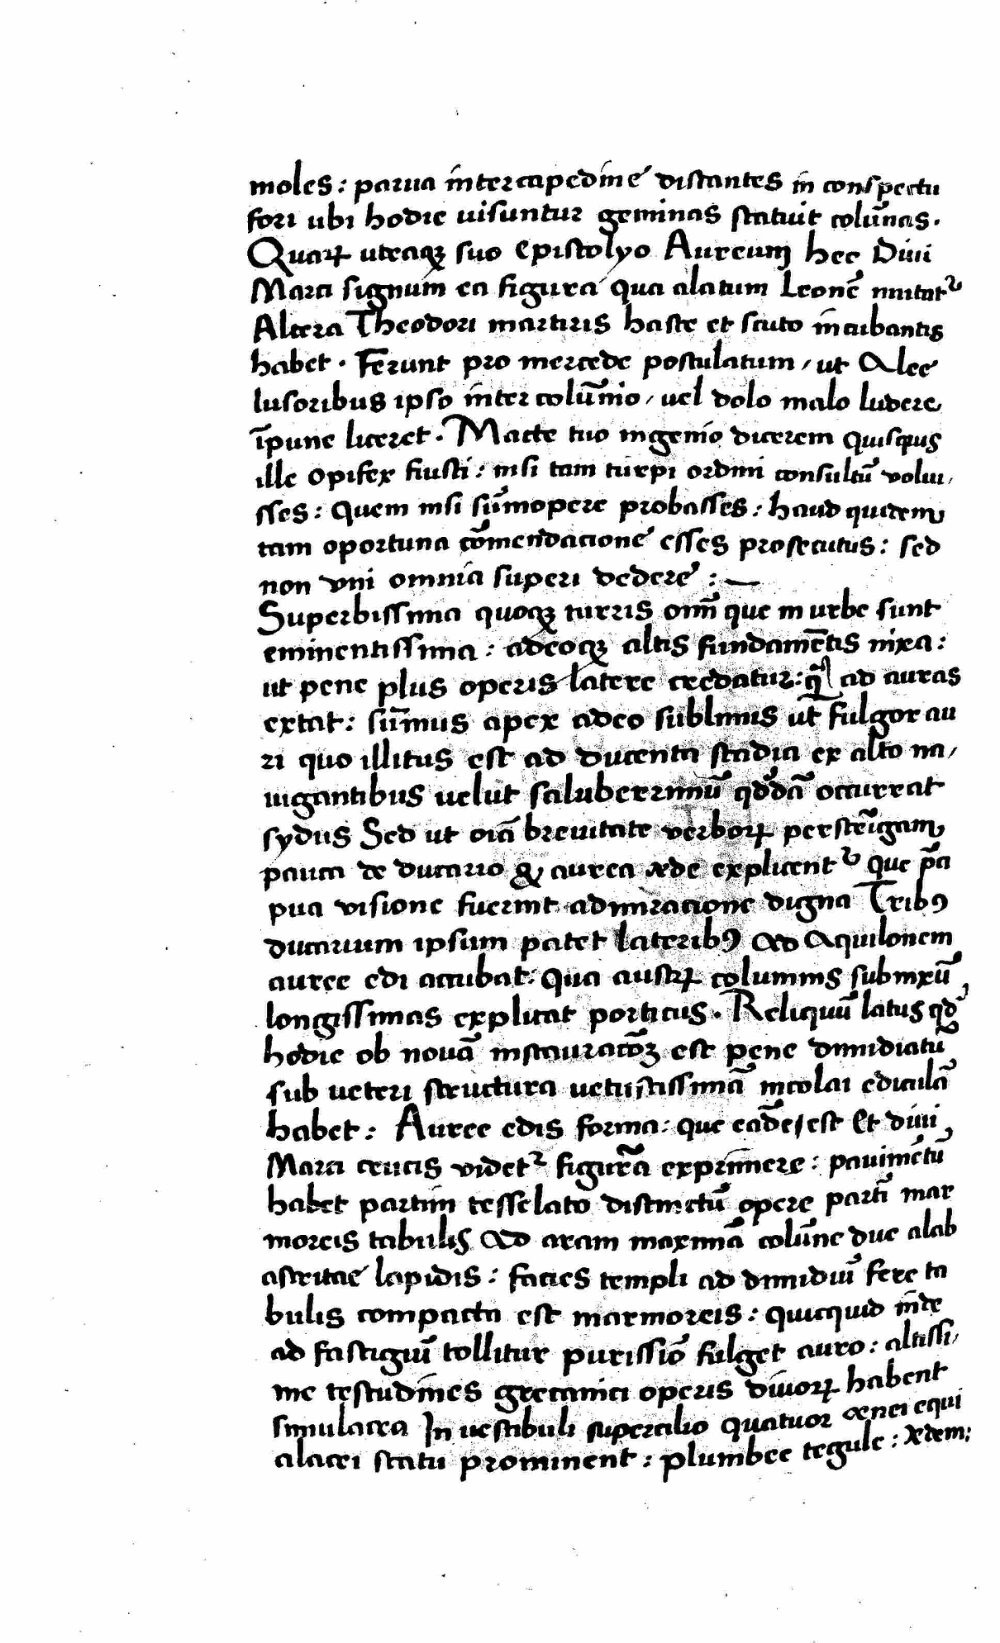 moles: parua intercapedine distantes in conspectu
fori ubi hodie uisuntur geminas statuit colūnas.
Quaꝝ utraqꝫ suo Epistolyo Aureum hec Diui
Marci signum ea figura qua alatum Leonē mitat᷑
Altera Theodori martiris haste et scuto incubantis
habet. Ferunt pro mercede postulatum / ut Alee
lusoribus ipso inter colūnio / uel dolo malo ludere
īpune liceret. Macte tuo ingenio dicerem quisquis
ille opifex fuisti: nisi tam turpi ordini consultū volui/
sses: quem nisi sūmopere probasses: haud quidem
tam oportuna cōmendacione esses prosecutus: sed
non vni omnia superi dedere: —
Superbissima quoqꝫ turris oim̄ que in urbe sunt
eminentissima: adeoqꝫ altis fundamētis nixa:
ut pene plus operis latere credatur: qꝫ ad auras
extat: sūmus apex adeo sublimis ut fulgor au
ri quo illitus est ad ducenta stadia ex alto na/
uigantibus uelut saluberrimū qddā occurrat
sydus Sed ut oīa breuitate verboꝝ perstrīgam
pauca de ducario & aurea æde explicent᷑ que p̄ci
pua visione fuerint admiracione digna Tribꝰ
ducarium ipsum patet lateribꝰ Ad Aquilonem
auree edi accubat: qua austrꝝ columnis submixū
longissimas explicat porticus. Reliquū latus qd
hodie ob nouā instauracōꝫ est pene dimidiatū
sub ueteri structura uetustissimā nicolai ediculā
habet: Auree edis forma: que eadē est Et diui
Marci crucis videt᷑ figurā exprimere: pauimētū
habet partim tesselato distinctū opere partī mar
moreis tabulis Ad aram maximā colūne due alab
astritae lapidis: facies templi ad dimidiū fere ta
bulis compacta est marmoreis: quicquid inde
ad fastigiū tollitur purissīo fulget auro: altissi/
me testudines grecanici operis diuoꝝ habent
simulacra In uestibuli supercilio quatuor ænei equi
alacri statu prominent: plumbee tegule: ædem: